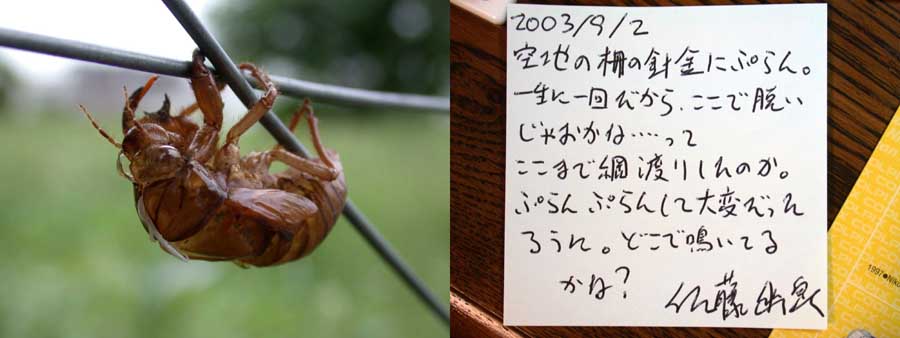 2003/9/2
空地の柵の針金にぷらん。
一生に一回だから、ここで脱い
じゃおかな……って
ここまで綱渡りしたのか。
ぷらんぷらんして大変だった
ろうに。どこで鳴いてる
かね?
佐藤
1997●NIK